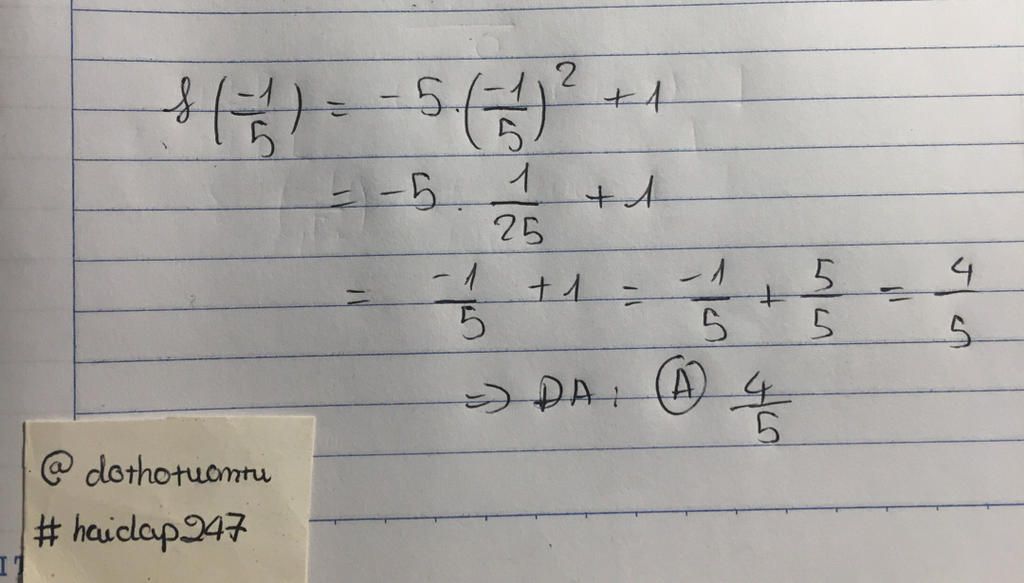 f(-1/5) = -5.(-1/5)² + 1
= -5. 1/25 + 1
= -1/5 + 1 = -1/5 + 5/5 = 4/5
=> DA: (A) 4/5
@dothotuomtu
#haidap247